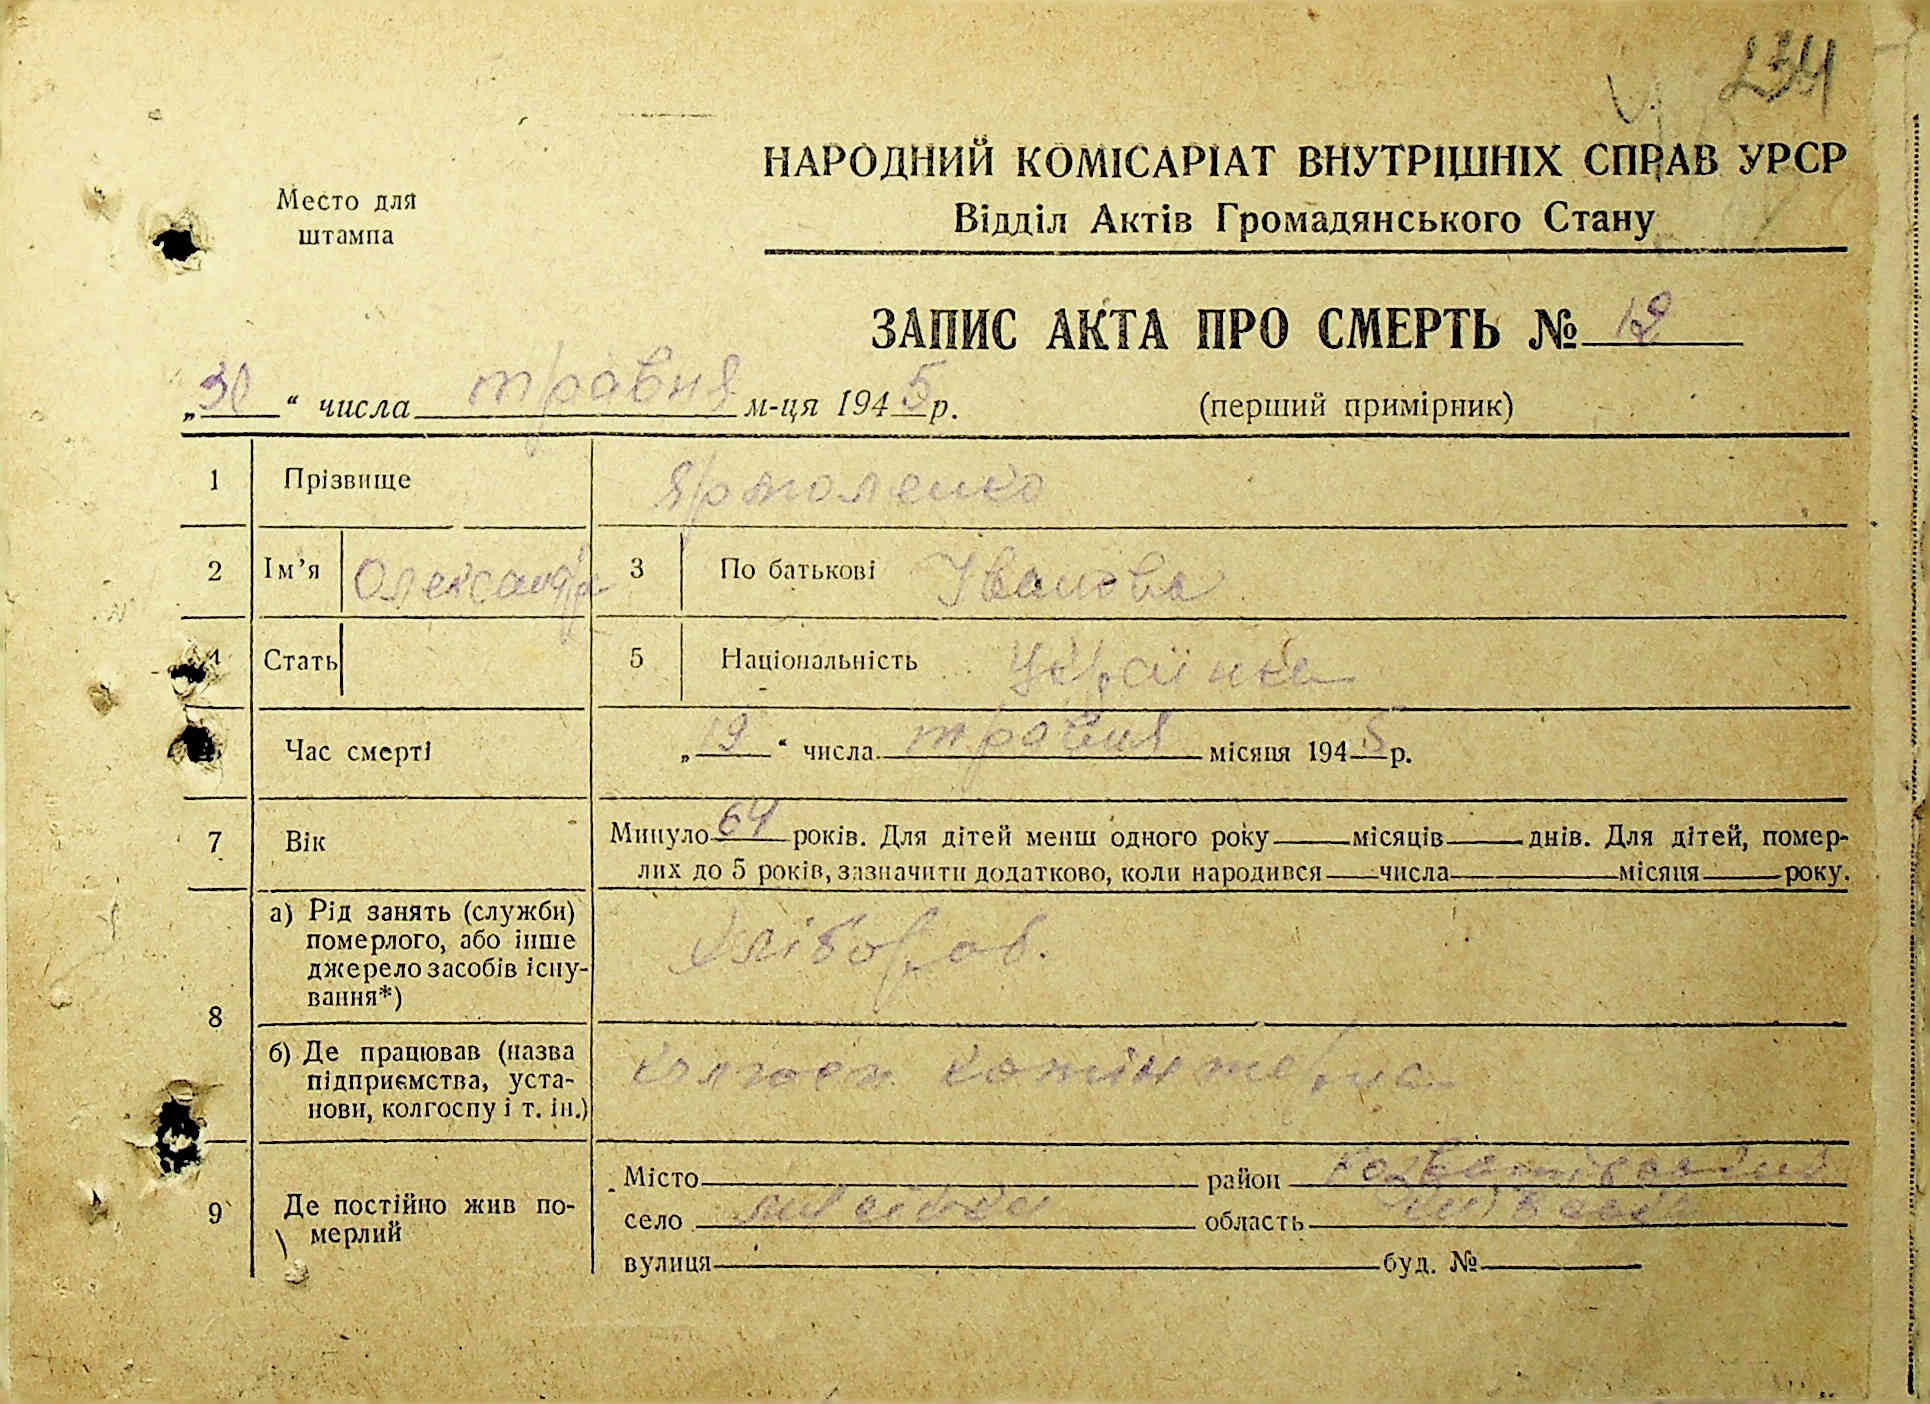 234
Место для
штампа
НАРОДНИЙ КОМІСАРІАТ ВНУТРІШНІХ СПРАВ УРСР
Відділ Актів Громадянського Стану
ЗАПИС АКТА ПРО СМЕРТЬ № 19
„30“ числа травня м-ця 1945 р. (перший примірник)
1 Прізвище Ярмоленко
2 Ім’я Олександра 3 По батькові Іванова
4 Стать 5 Національність Українка
Час смерті „19“ числа травня місяця 1945 р.
7 Вік Минуло 64 років. Для дітей менш одного року місяців днів. Для дітей, помер-
лих до 5 років, зазначити додатково, коли народився числа місяця року.
8 а) Рід занять (служби)
померлого, або інше
джерело засобів існу-
вання*) Хлібороб.
б) Де працював (назва
підприємства, уста-
нови, колгоспу і т. ін.) колгосп комінтерна
9 Де постійно жив по-
мерлий
Місто район
село область
вулиця буд. №